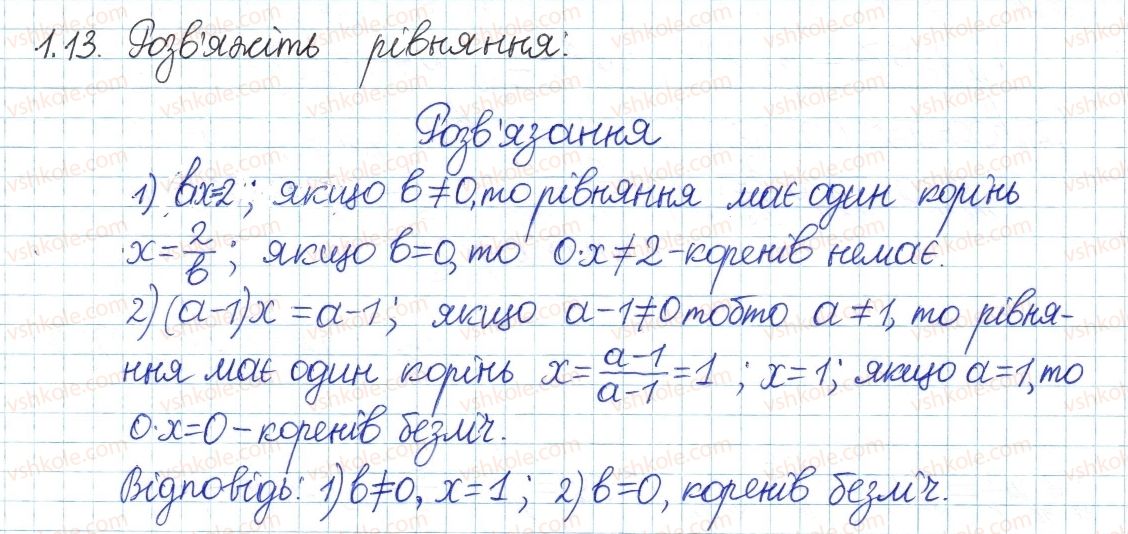 1.13. Розв'яжіть рівняння:
Розв'язання
1) bx=2; якщо b≠0, то рівняння має один корінь
x=2/b; якщо b=0, то 0·x≠2 - коренів немає.
2) (a-1)x=a-1; якщо a-1≠0 тобто a≠1, то рівня-
ння має один корінь x=(a-1)/(a-1)=1; x=1; якщо a=1, то
0·x=0 - коренів безліч.
Відповідь: 1) b≠0, x=1; 2) b=0, коренів безліч.